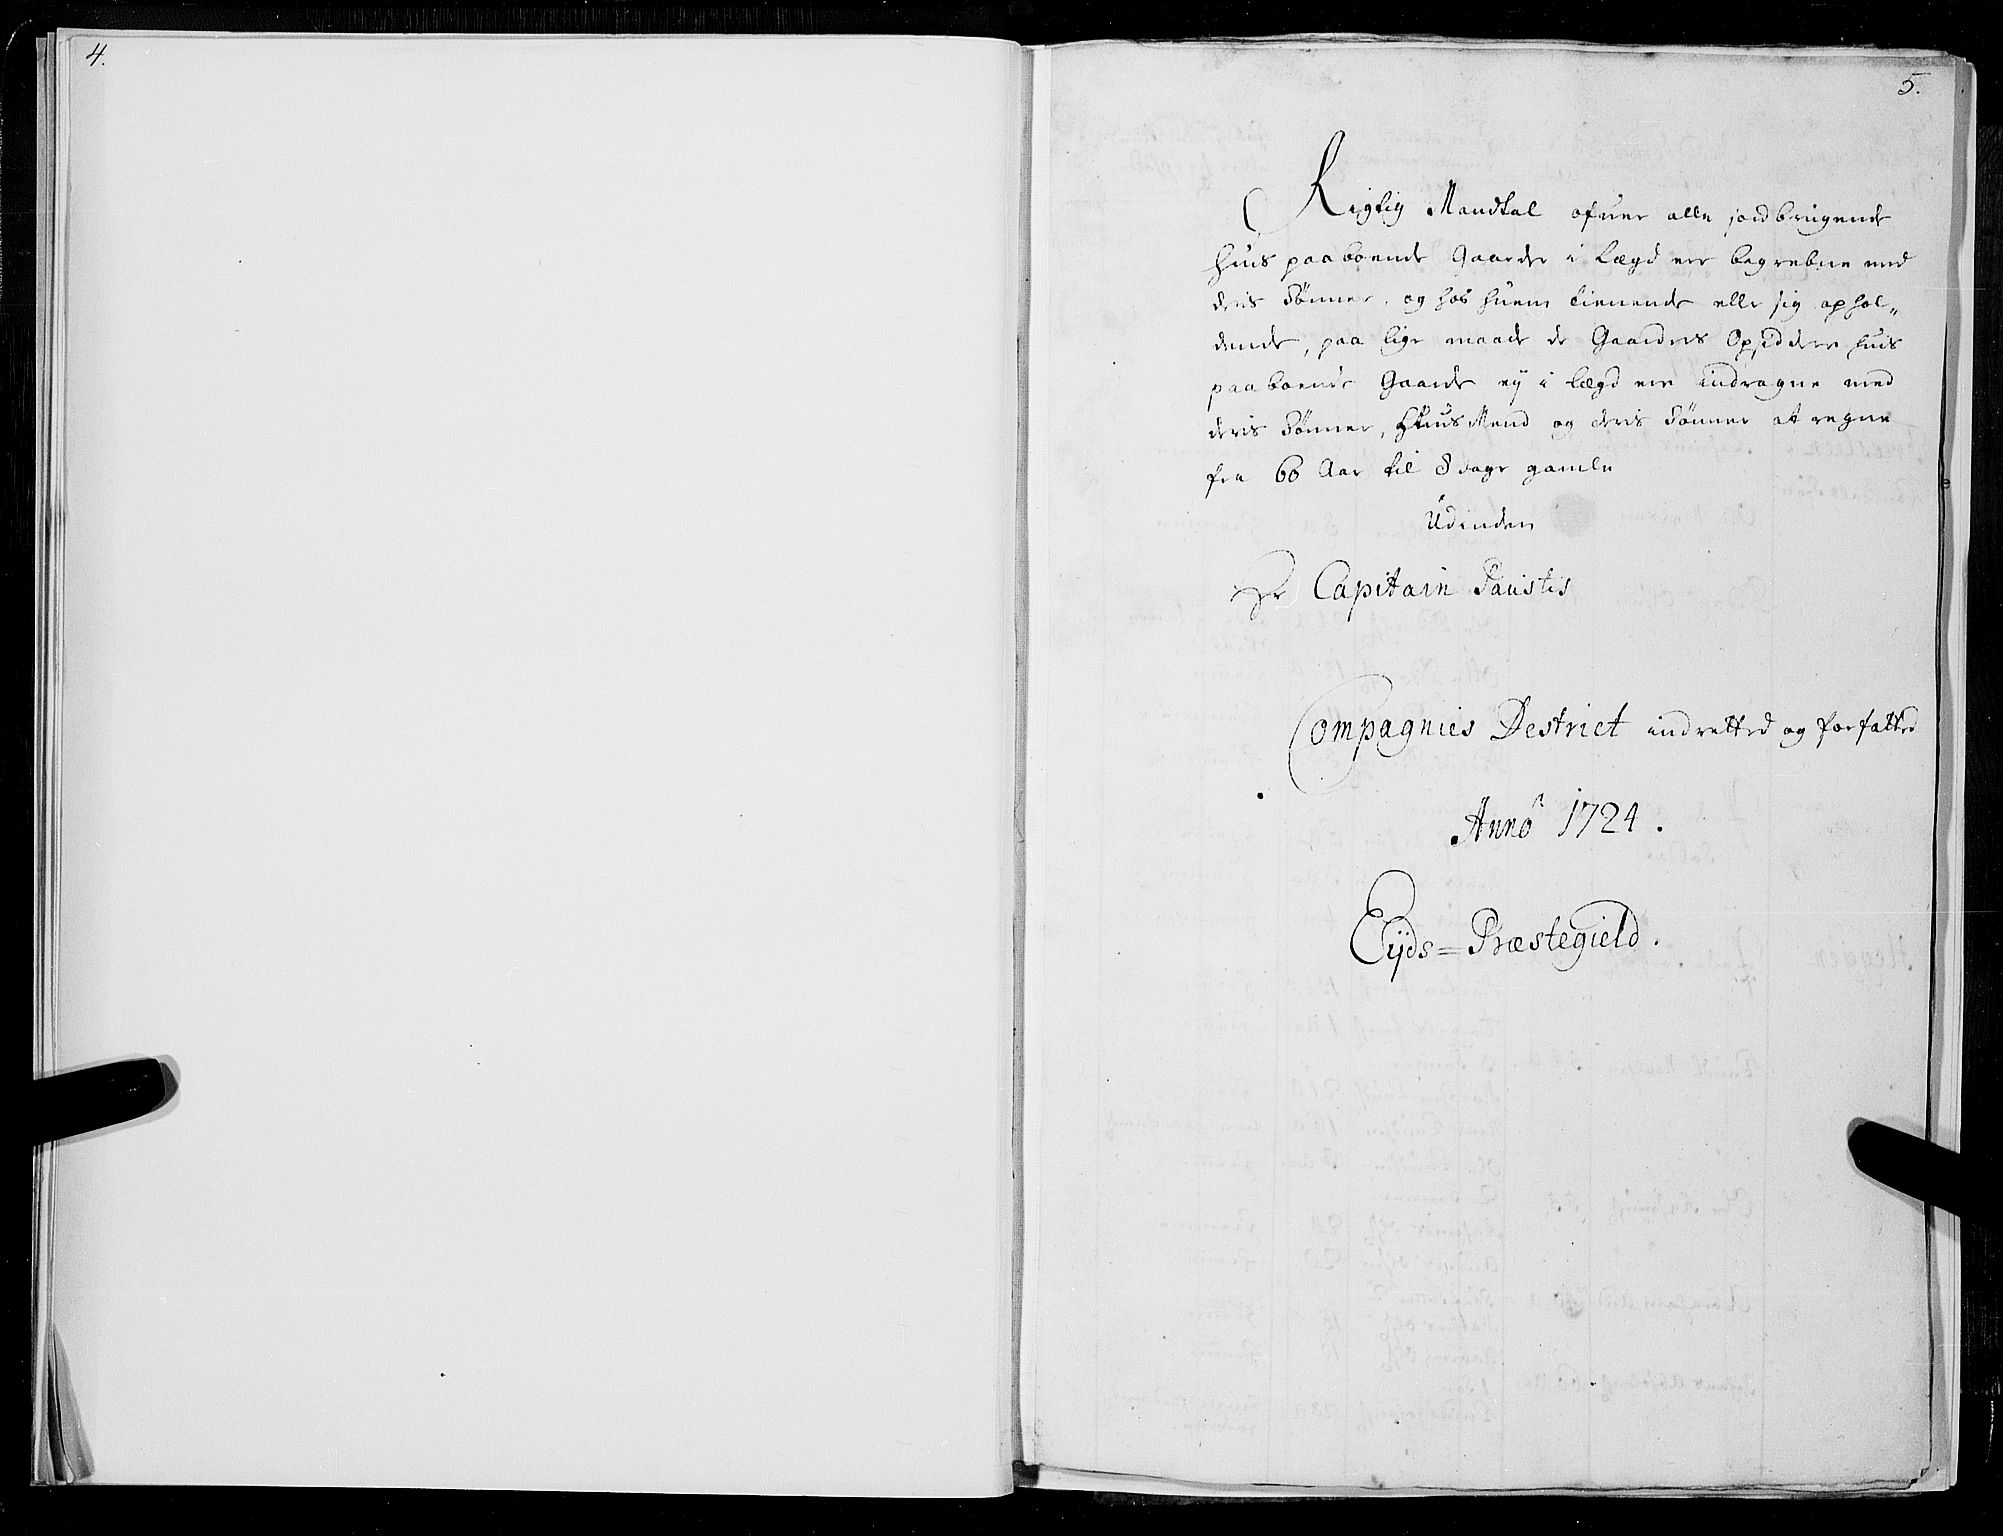 4.
5.
Rigtig Mandtal ofuer alle jordbrugende
huis paaboende Gaarder i Lægd ere begrebne med
deris Sønner, og hos huem tienende eller sig ophol„
dende, paa lige maade de Gaarders Opsiddere huis
paaboende Gaarde eÿ i Lægd ere inddragne med
deris Sønner, HuusMend og deris Sønner at regne
fra 60 Aar til 8 dage gamle
Udinden
Hr Capitain Paustis
Compagnies Destrict indretted og forfatted
Anno 1724.
Eÿds=Præstegield.